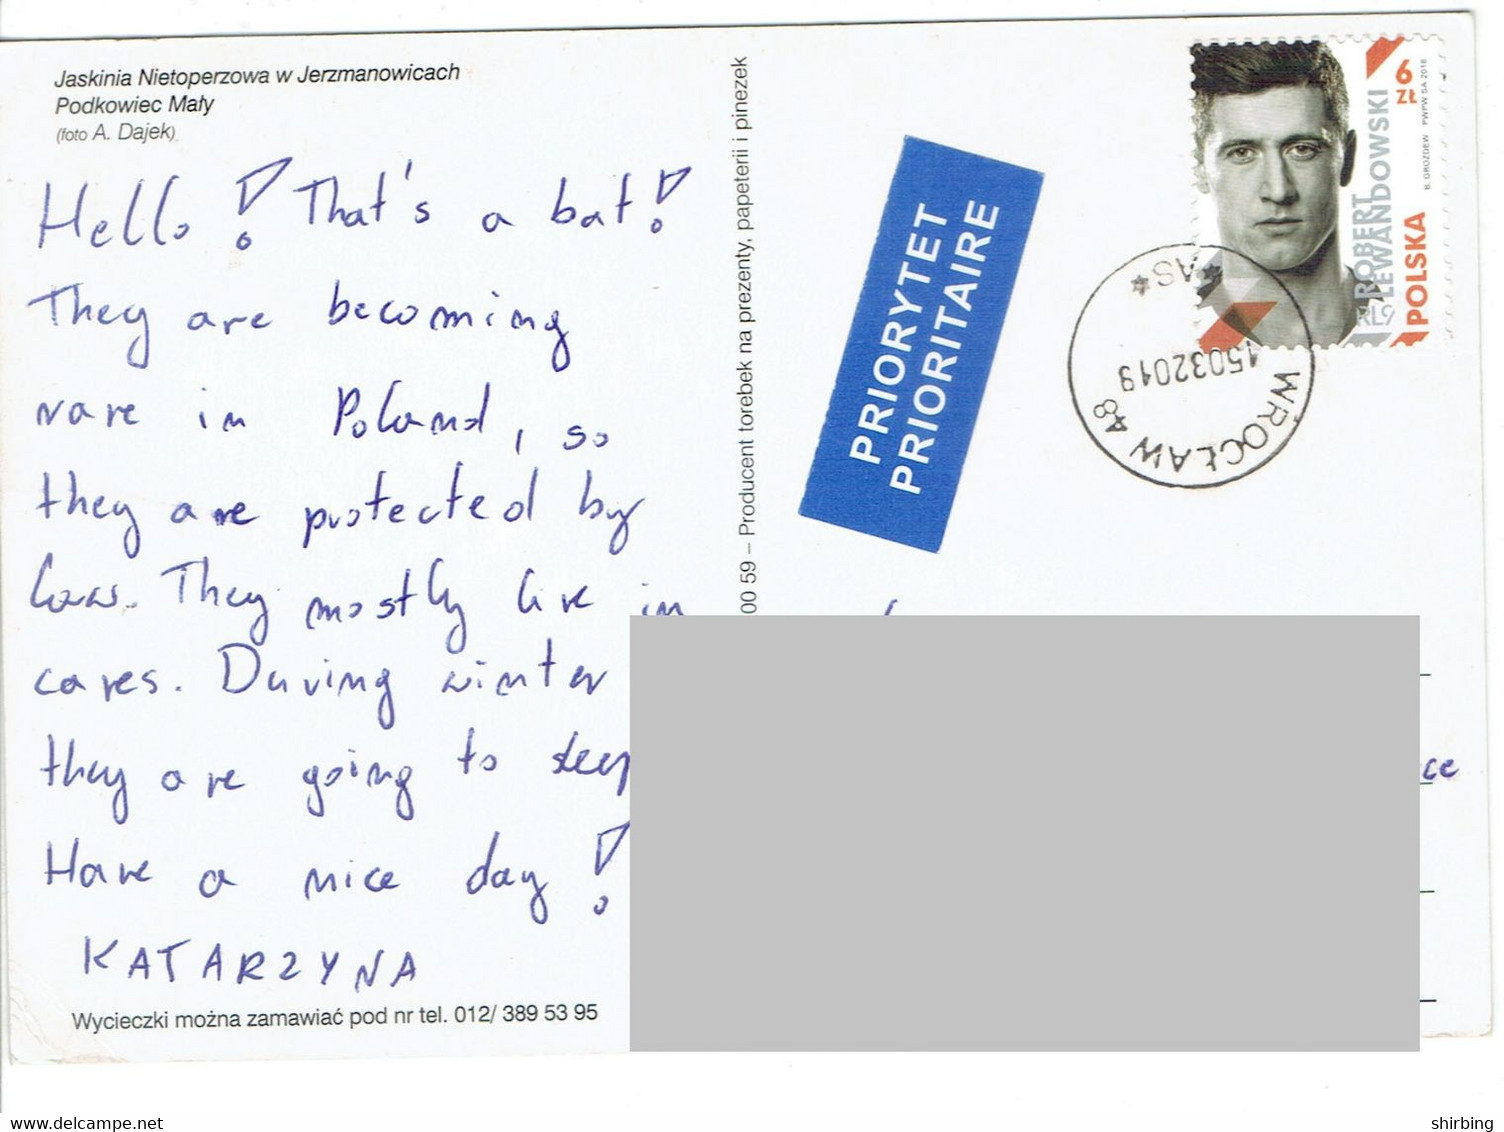 Jaskinia Nietoperzowa w Jerzmanowicach
Podkowiec Mały
(foto A. Dajek)
Hello! That's a bat!
They are becoming
rare in Poland, so
they are protected by
law. They mostly live in
caves. During winter
they are going to sleep
Have a nice day!
KATARZYNA
Wycieczki można zamawiać pod nr tel. 012/ 389 53 95
00 59 – Producent torebek na prezenty, papeterii i pinezek
PRIORYTET
PRIORITAIRE
6
ZŁ
ROBERT
LEWANDOWSKI
RL9
POLSKA
B. GROZDEW PWPW SA 2018
WROCŁAW A8
15032019
*AS*
ce
www.delcampe.net
shirbing